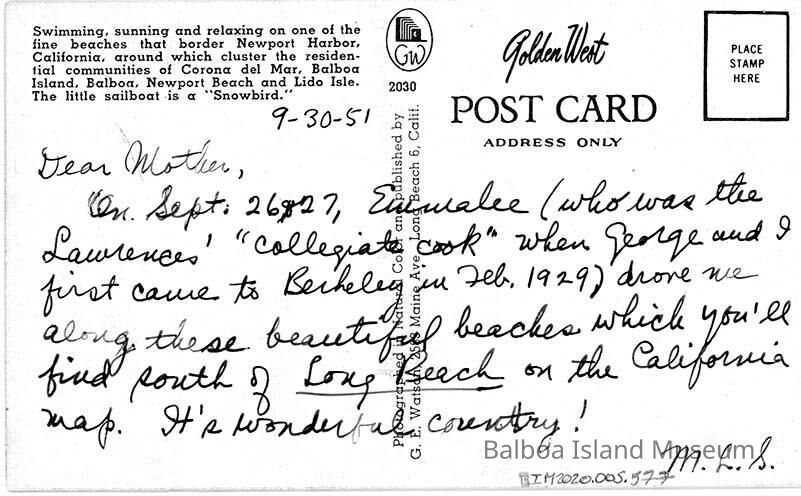 Swimming, sunning and relaxing on one of the
fine beaches that border Newport Harbor,
California, around which cluster the residen-
tial communities of Corona del Mar, Balboa
Island, Balboa, Newport Beach and Lido Isle.
The little sailboat is a "Snowbird."
GW
2030
Golden West
POST CARD
ADDRESS ONLY
PLACE
STAMP
HERE
Photographed in Natural Color and published by
G. E. Watson, 2588 Maine Ave., Long Beach 6, Calif.
9-30-51
Dear Mother,
On Sept. 26 & 27, Emmalee (who was the
Lawrences' "collegiate cook" when George and I
first came to Berkeley in Feb. 1929) drove me
along these beautiful beaches which you'll
find south of Long Beach on the California
map. It's wonderful country!
M.L.S.
Balboa Island Museum
BIM2020.005.577